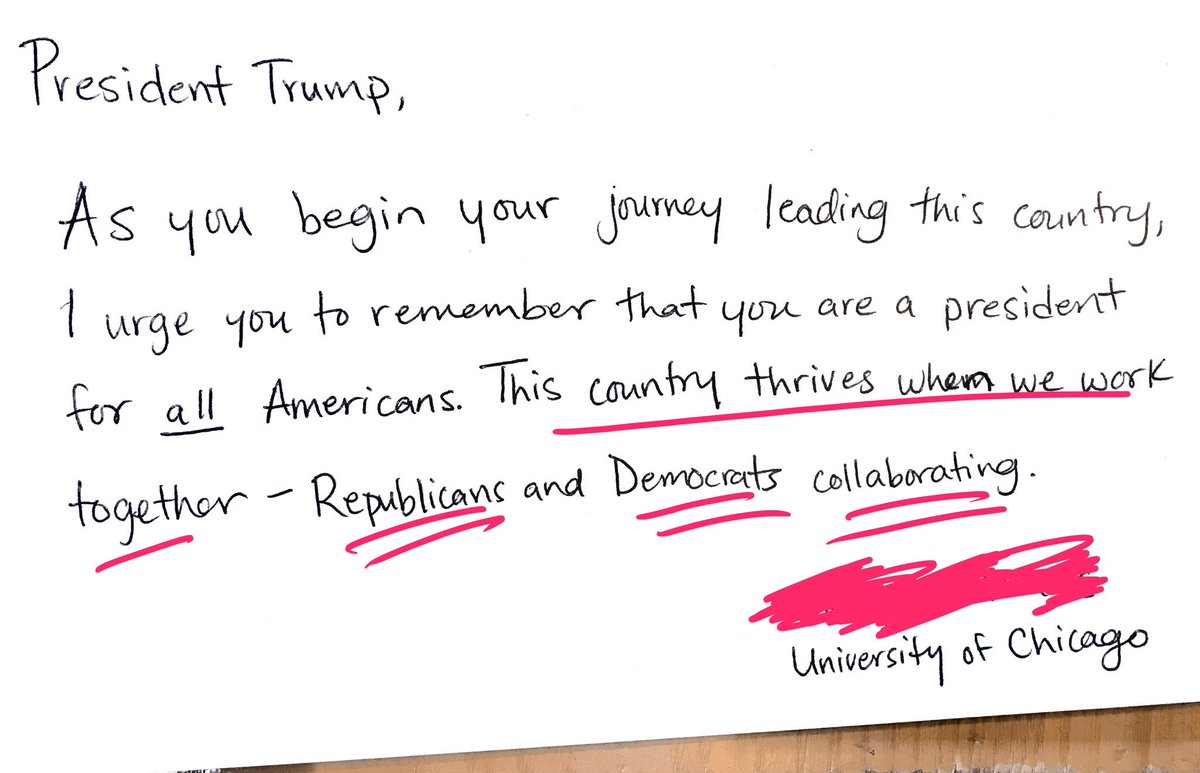 President Trump,
As you begin your journey leading this country,
I urge you to remember that you are a president
for all Americans. This country thrives when we work
together – Republicans and Democrats collaborating.
University of Chicago